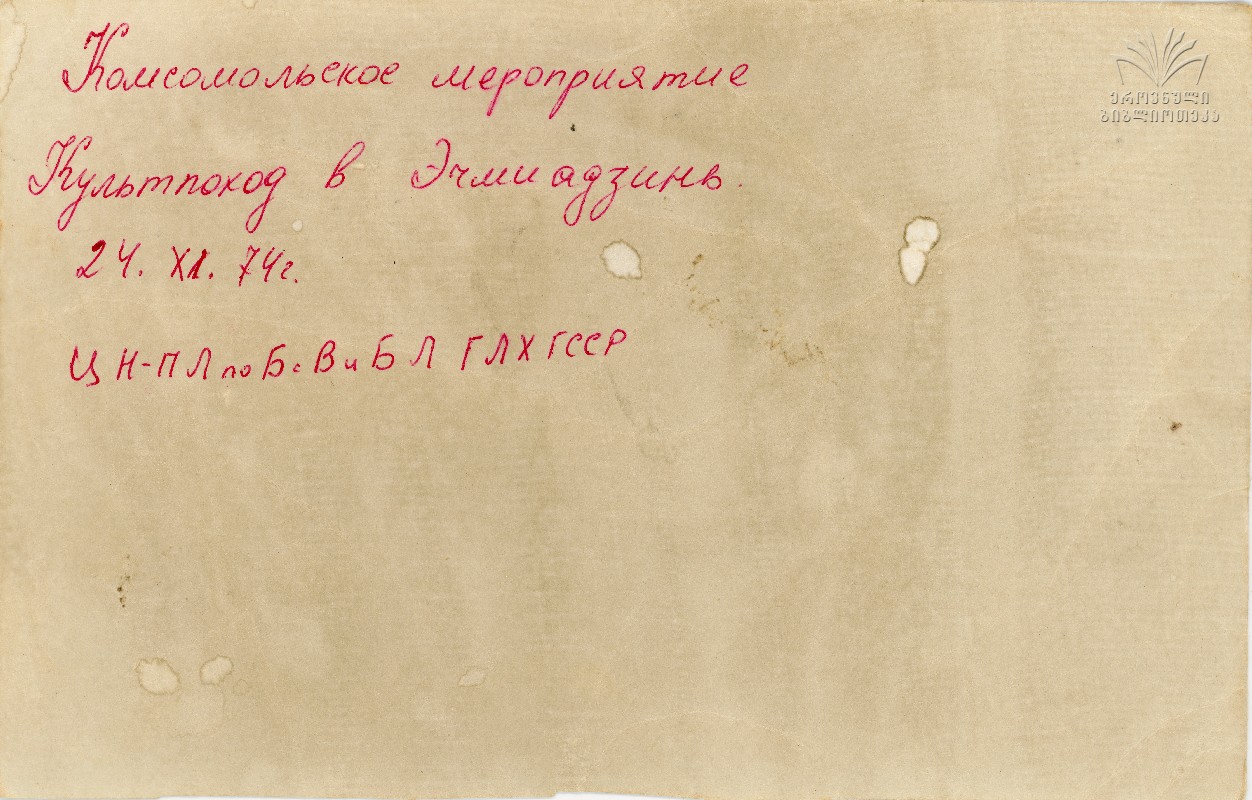 Комсомольское мероприятие
Культпоход в Эчмиадзинь.
24. XI. 74г.
ЦН-ПЛ по Б с В и БЛ ГЛХ ГССР
ეროვნული
ბიბლიოთეკა